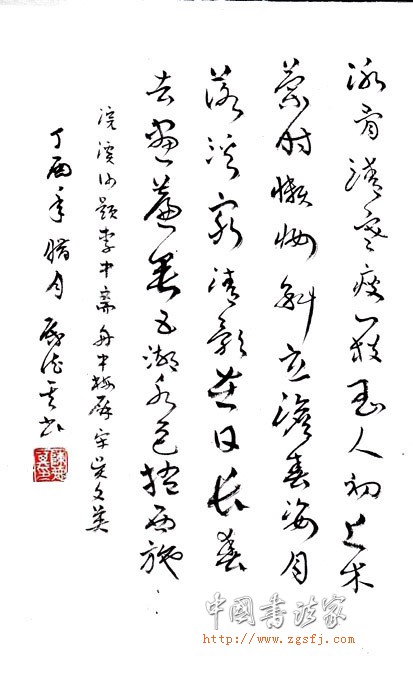 冰骨清寒瘦一枝玉人初上木
蘭时懒妆斜立澹春姿月
落溪穷清影在日长春
去画簾垂五湖水色掩西施
浣溪沙题李中斋舟中梅屏宋吴文英
丁酉年腊月 书
中國書法家
http://www.zgsfj.com